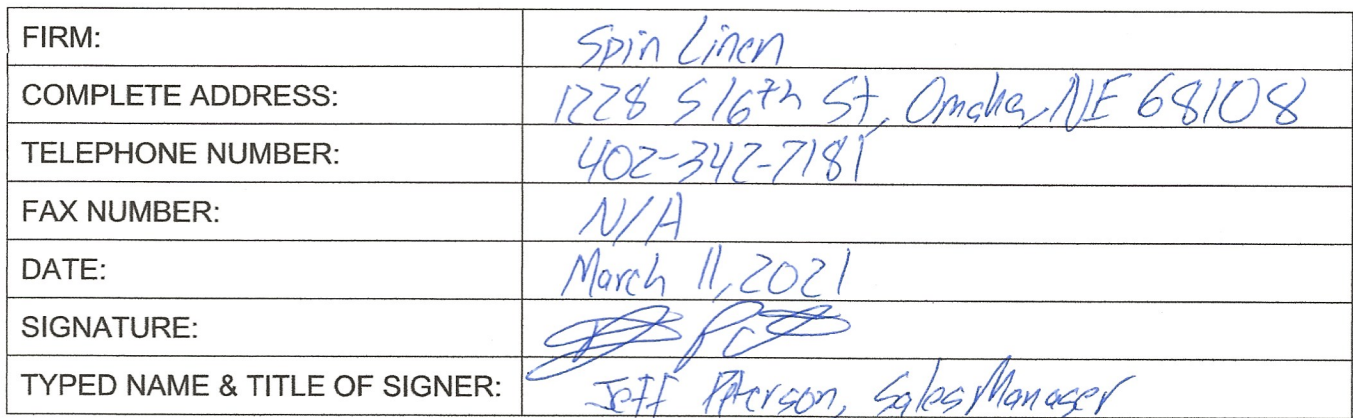 FIRM: Spin Linen
COMPLETE ADDRESS: 1228 S 16th St, Omaha, NE 68108
TELEPHONE NUMBER: 402-342-7181
FAX NUMBER: N/A
DATE: March 11, 2021
SIGNATURE:
TYPED NAME & TITLE OF SIGNER: Jeff Peterson, Sales Manager